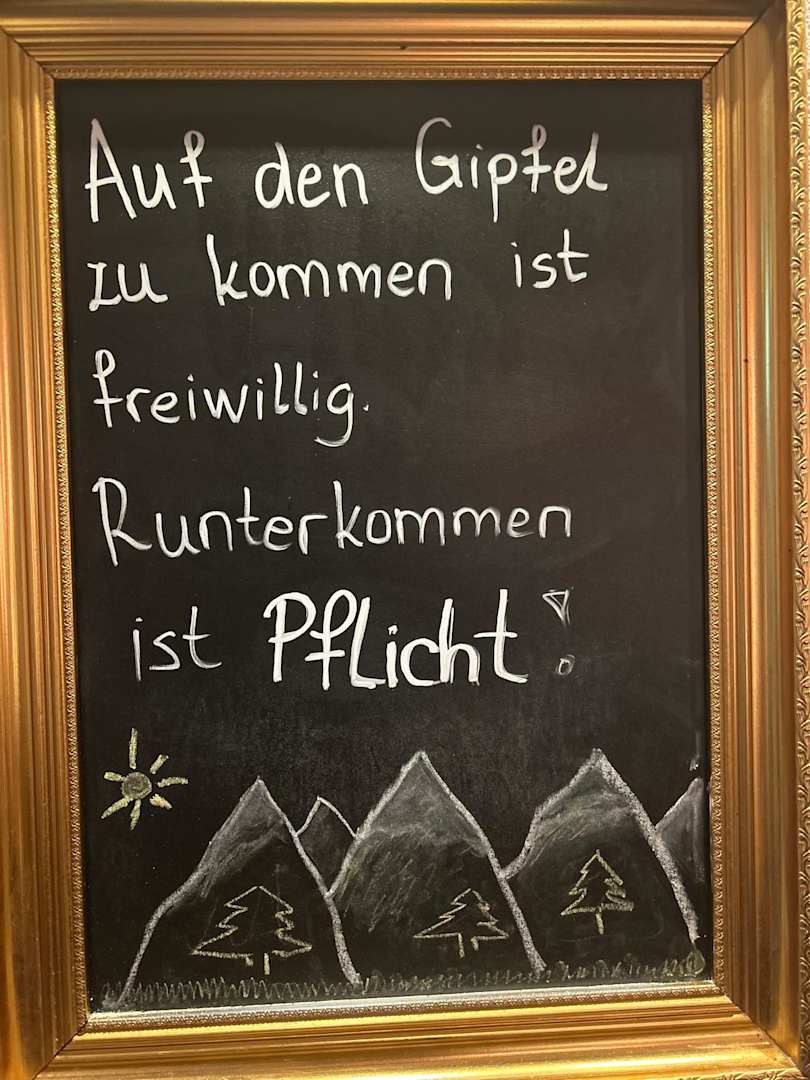 Auf den Gipfel
zu kommen ist
freiwillig.
Runterkommen
ist Pflicht!